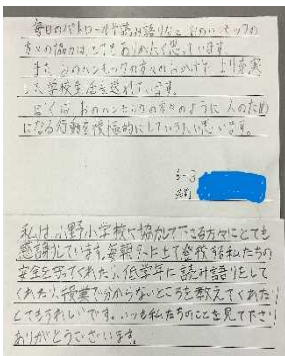 毎日のパトロールや読み語りなど、おのハンモックの
方々の協力は、とてもありがたく思っています。
また、おのハンモックの方々のおかげで、より充実
した学校生活を送れています。
ぼくは、おのハンモックの方々のように人のため
になる行動を積極的にしていきたいと思います。
私は、小野小学校に協力して下さる方々にとても
感謝しています。毎朝、上登校時私たちの
安全を守ってくれたり、低学年に読み語りをして
くれたり、授業で分からないところを教えてくれた
とてもうれしいです。いつも私たちのことを見て下さり
ありがとうございます。